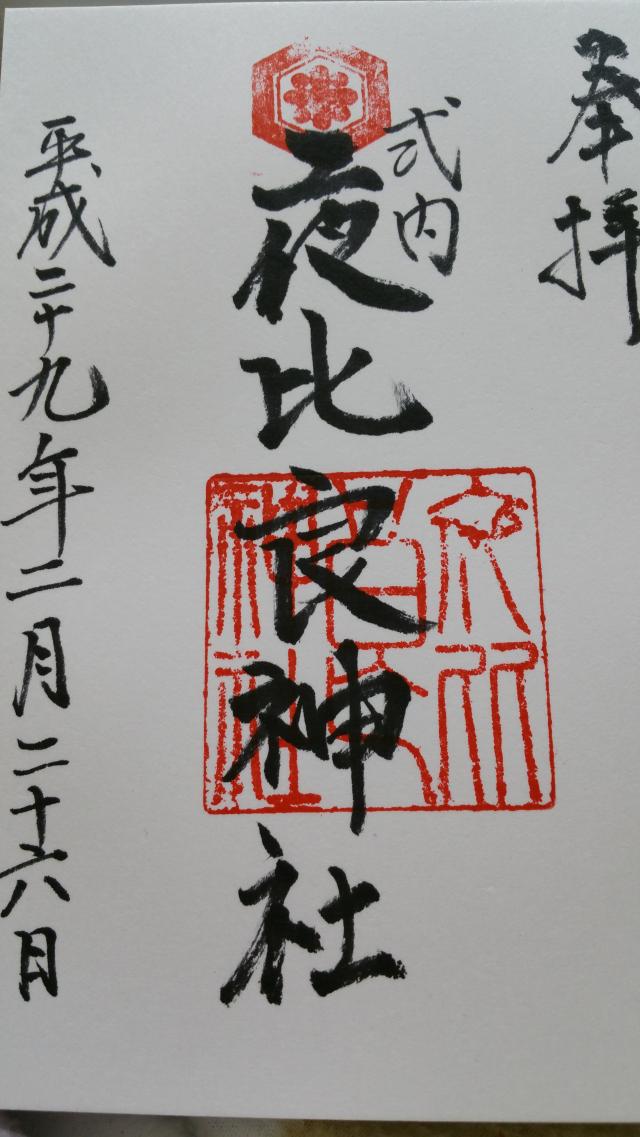 奉拝
式内
夜比良神社
平成二十九年二月二十六日